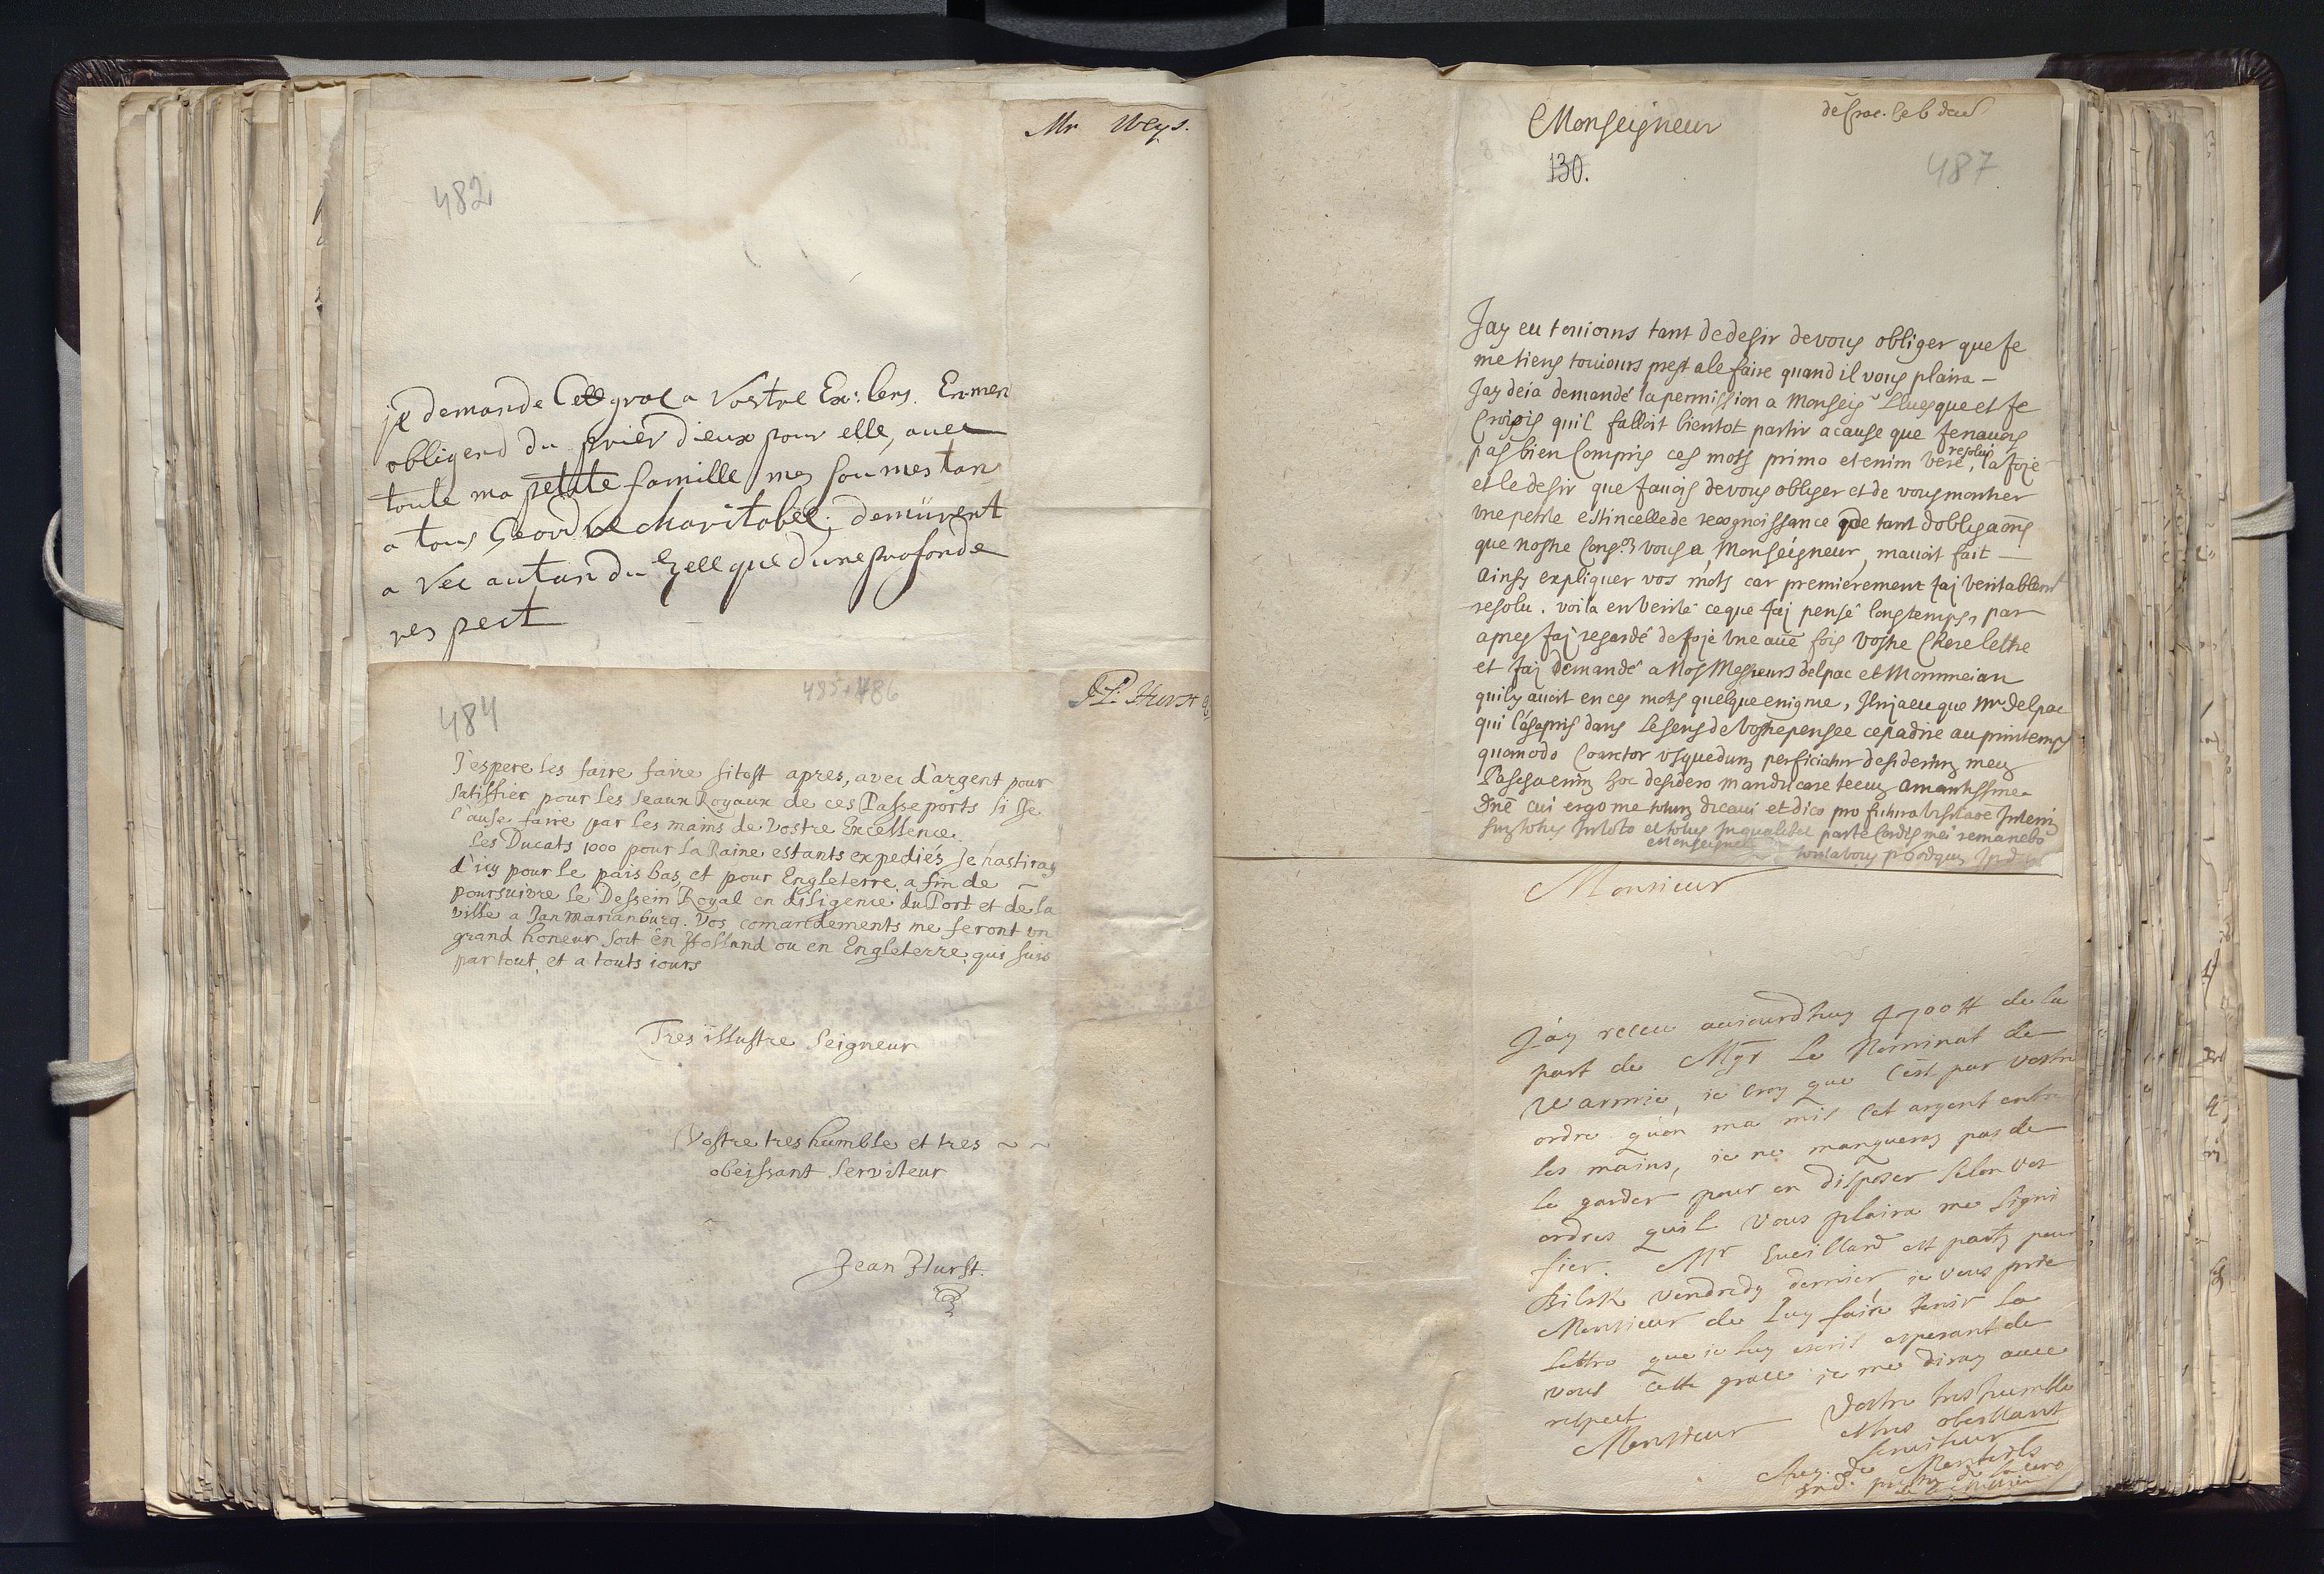 Mr Weys.
482
je demande Cette grace a Vostre Ex: lens. En men
obligend du prier dieux pour elle, avec
toute ma petite famille mes soumes tan
a tous charitable; demürent
a Vec autan du Zelle que dune profonde
respect
484
485+486
P: Hurst
J'espere les faire faire sitost apres, avec d'argent pour
satisfier pour les seaux Royaux de ces Passeports si Je
l'ause faire par les mains de Vostre Excellence.
Les Ducats 1000 pour La Raine estants expediés Je hastiray
d'icy pour le pais bas, et pour Engleterre a fin de
poursuivre le Dessein Royal en diligence du Port et de la
ville a Jan Marianburg. Vos comandements me seront un
grand honeur soit en Holland ou en Engleterre, qui suis
par tout, et a touts iours
Tres illustre Seigneur
Vostre tres humble et tres ~ ~
obeissant Serviteur
Jean Hurst.
Monseigneur
130.
487
Jay eu touiours tant de desir de vous obliger que Je
me tiens touiours prest a le faire quand il vous plaira –
Jay deia demandé la permission a Monseigr Lluesque et Je
Croiois quil falloit bientot partir acause que Jenauois
pas bien Compris ces mots primo etenim vere resolui, la Joje
et le desir que Jauois de vous obliger et de vous montrer
vne petite estincelle de recognoissance de tant dobligaōns
que nostre Cong.on vous a, Monseigneur, mauoit fait –
Ainsy expliquer vos mots car premierement Jaj veritablemt
resolu. voila en verité ceque Jaj pensé longtemps, par
apres Jaj regardé de Joje vne aut̄e fois vostre Chere lettre
et Jaj demandé a Nos Messieurs delpac et Mommeian
quily auoit en ces mots quelque enigme, Jlnja eu que Mr delpac
qui l'ayapris dans Le sens de vostre pensee cepadire au printemps
quomodo Coarctor vsquedum perficiatur desiderium meum
Pascha enim hoc desidero manducare tecum Amantissime
Dn̄e cui ergo me totum dicaui et dico pro futura Jnterim
sum totus Jn toto et totus Jn qualibet parte Cordis mei remanebo
Monseigneur
Monsieur
J'ay receu auiourdhuy 4700 tt de la
part de Mgr Le Nominat de
Warmie, ie croy que c'est par vostre
ordre qu'on ma mis Cet argent entre
les mains, ie ne manqueray pas de
le garder pour en disposer selon vos
ordres qu'il vous plaira me signi
fier. Mr Gueillard est party pour
Bilsk vendredy dernier, ie vous prie
Monsieur de Luy faire tenir la
lettre que ie luy escris esperant de
vous cette grace ie me diray avec
respect
Monsieur Vostre tres humble
et tres obeissant
Seruiteur